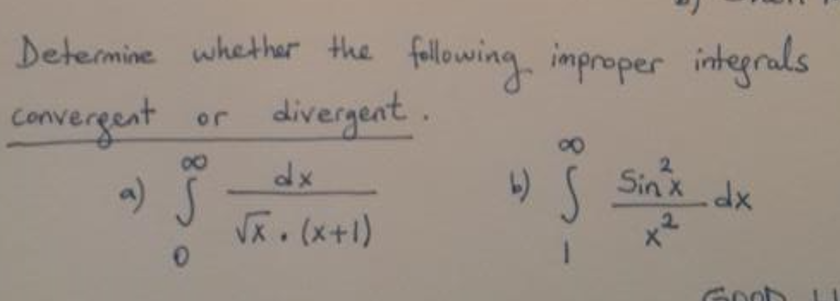 Determine whether the following improper integrals
convergent or divergent.
a) ∫₀^∞ dx / (√x · (x+1)) b) ∫₁^∞ Sin²x / x² dx
GOOD